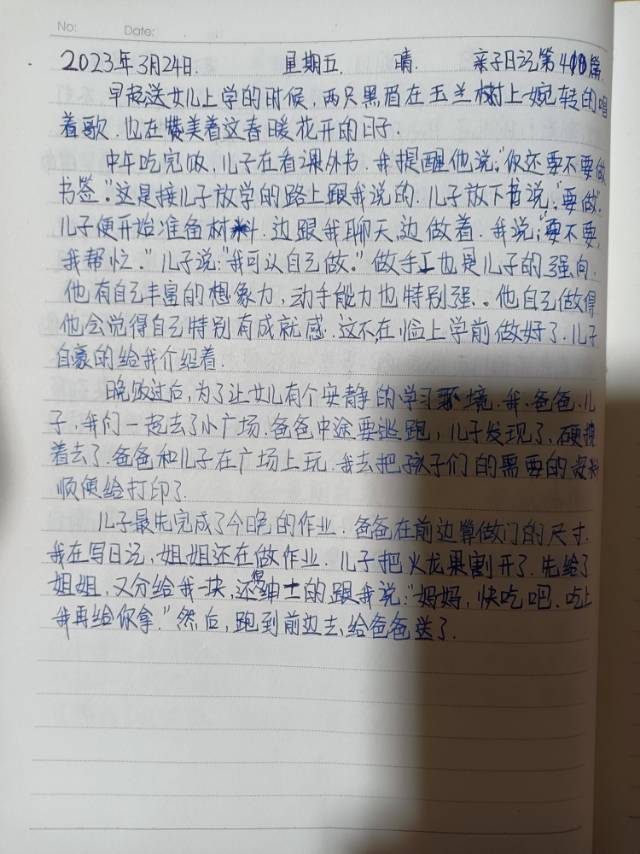 No:            Date:
2023年3月24日.   星期五.   晴.   亲子日记第410篇
早起送女儿上学的时候,两只黑眉在玉兰树上婉转的唱
着歌.也在赞美着这春暖花开的日子.
中午吃完饭,儿子在看课外书.我提醒他说:“你还要不要做
书签.”这是接儿子放学的路上跟我说的.儿子放下书说:“要做”.
儿子便开始准备材料.边跟我聊天,边做着.我说:“要不要,
我帮忙.”儿子说:“我可以自己做.”做手工也是儿子的强向.
他有自己丰富的想象力,动手能力也特别强..他自己做得
他会觉得自己特别有成就感.这不,在临上学前做好了.儿子
自豪的给我介绍着.
晚饭过后,为了让女儿有个安静的学习环境.我.爸爸.儿
子,我们一起去了小广场.爸爸中途要逃跑,儿子发现了.硬拽
着去了.爸爸和儿子在广场上玩.我去把孩子们的需要的资料
顺便给打印了.
儿子最先完成了今晚的作业.爸爸在前边算做门的尺寸.
我在写日记,姐姐还在做作业.儿子把火龙果割开了.先给了
姐姐,又分给我一块,还很绅士的跟我说:“妈妈,快吃吧.吃上
我再给你拿.”然后,跑到前边去,给爸爸送了.